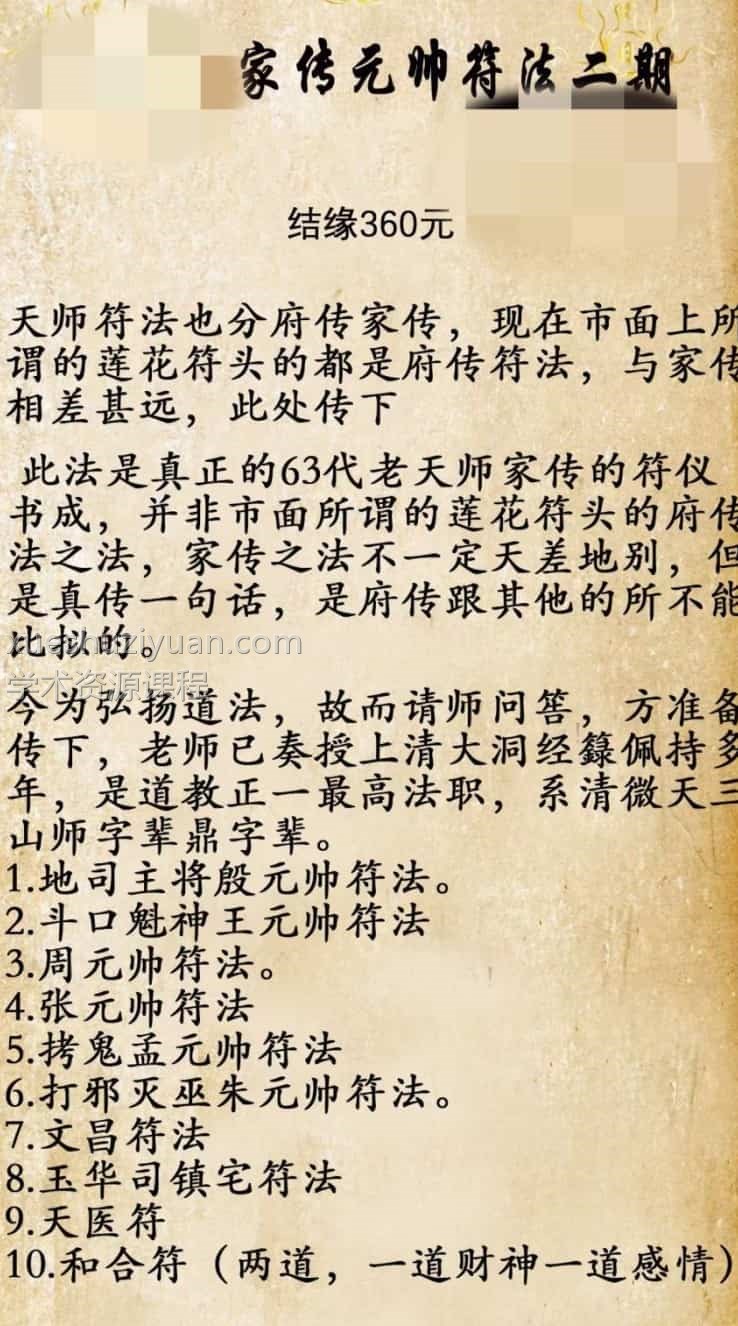 家传元帅符法二期
结缘360元
天师符法也分府传家传，现在市面上所
谓的莲花符头的都是府传符法，与家传
相差甚远，此处传下
此法是真正的63代老天师家传的符仪
书成，并非市面所谓的莲花符头的府传
法之法，家传之法不一定天差地别，但
是真传一句话，是府传跟其他的所不能
比拟的。
xueshuziyuan.com
学术资源课程
今为弘扬道法，故而请师问筶，方准备
传下，老师已奏授上清大洞经籙佩持多
年，是道教正一最高法职，系清微天三
山师字辈鼎字辈。
1.地司主将殷元帅符法。
2.斗口魁神王元帅符法
3.周元帅符法。
4.张元帅符法
5.拷鬼孟元帅符法
6.打邪灭巫朱元帅符法。
7.文昌符法
8.玉华司镇宅符法
9.天医符
10.和合符（两道，一道财神一道感情）